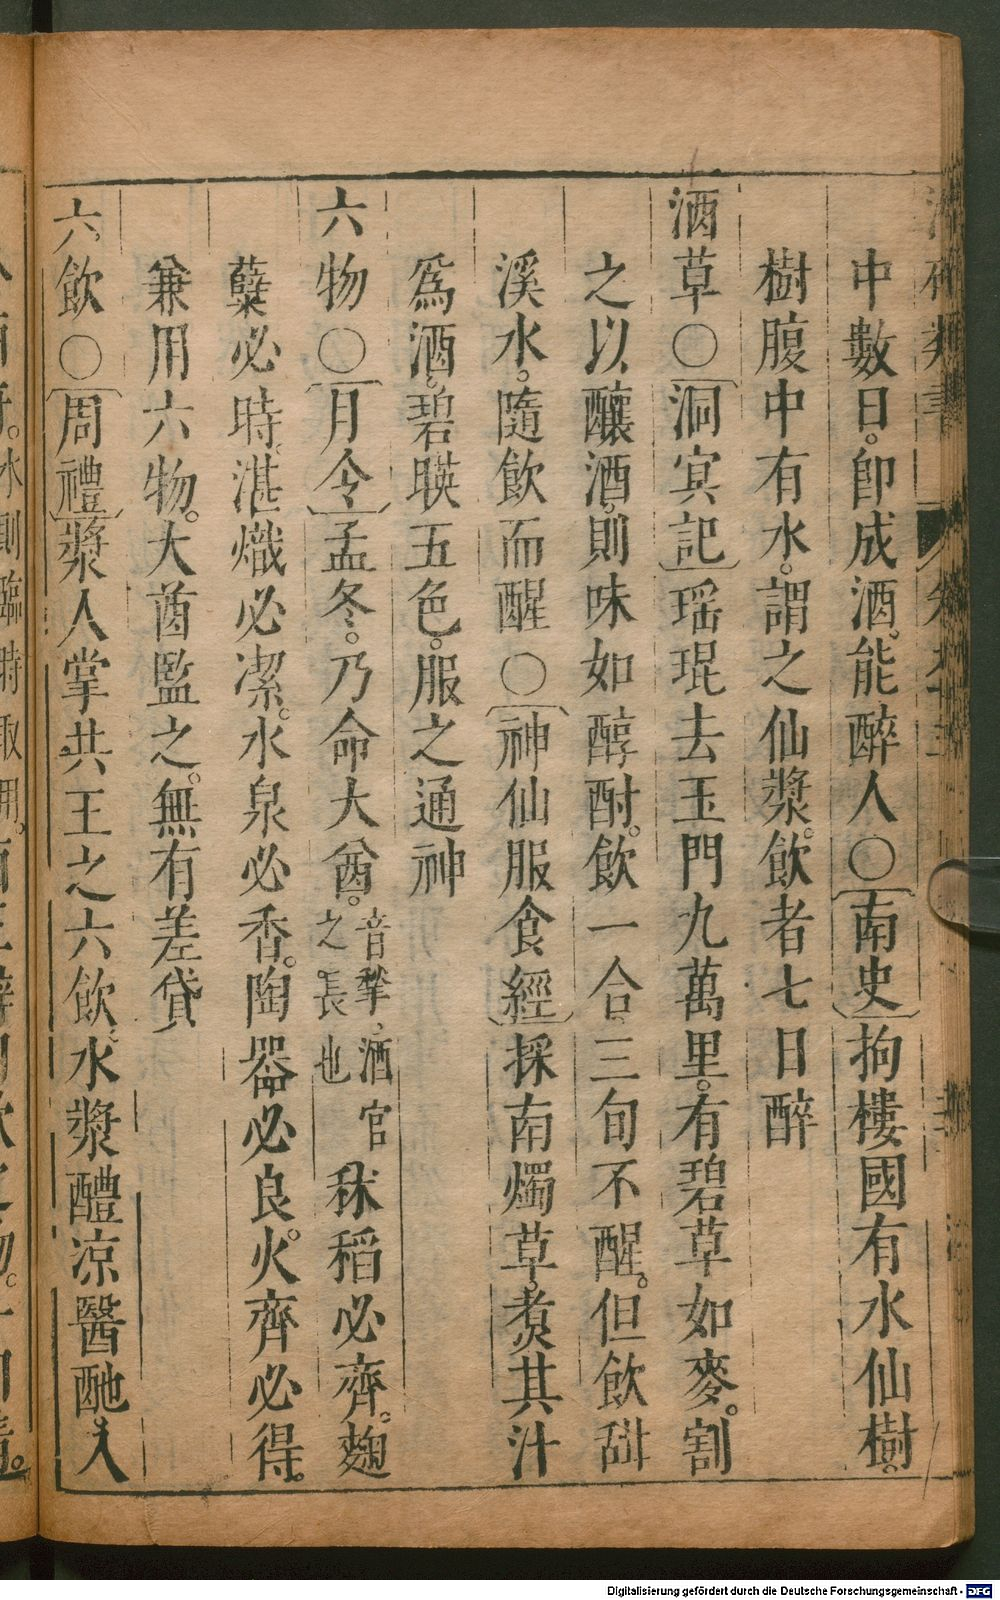 中數日。卽成酒。能醉人〇南史拘樓國有水仙樹。
樹腹中有水。謂之仙漿。飲者七日醉
酒草〇洞宾記瑶琨去玉門九萬里。有碧草如麥。割
之以釀酒。則味如醇酎。飲一合。三旬不醒。但飲甜
溪水。隨飲而醒〇神仙服食經採南燭草。煑其汁
爲酒。碧暎五色。服之通神
六物〇月令孟冬。乃命大酋。音揫。酒官之長也秫稻必齊。麯
糵必時。湛熾必潔。水泉必香。陶器必良。火齊必得。
兼用六物。大酋監之。無有差貸
六飲〇周禮漿人掌共王之六飲。水漿醴凉醫酏。入
Digitalisierung gefördert durch die Deutsche Forschungsgemeinschaft - DFG